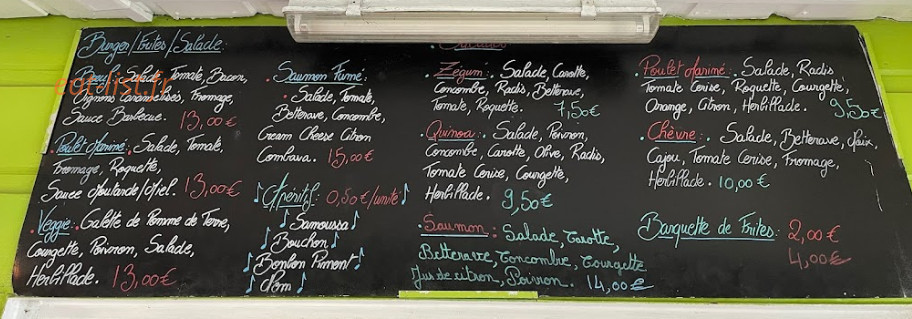 Burger/Frites/Salade:
Boeuf: Salade, Tomate, Bacon,
Oignons Caramélisés, Fromage,
Sauce Barbecue. 13,00€
Poulet Mariné: Salade, Tomate,
Fromage, Roquette,
Sauce Moutarde/Miel. 13,00€
Veggie: Galette de Pomme de Terre,
Courgette, Poivron, Salade,
13,00€
Saumon Fumé:
Salade, Tomate,
Betterave, Concombre,
Cream Cheese Citron
Combava. 15,00€
Apéritif: 0,50€/unité
Samoussa
Bouchon
Bonbon Piment
Nem
Zegum: Salade, Carotte,
Concombre, Radis, Betterave,
Tomate, Roquette. 7,50€
Quinoa: Salade, Poivron,
Concombre, Carotte, Olive, Radis,
Tomate Cerise, Courgette,
9,50€
Saumon: Salade, Carotte,
Betterave, Concombre, Courgette
Jus de citron, Poivron. 14,00€
Poulet Mariné: Salade, Radis
Tomate Cerise, Roquette, Courgette,
Orange, Citron, 9,50€
Chèvre: Salade, Betterave, Maïs,
Cajou, Tomate Cerise, Fromage,
10,00€
Barquette de Frites: 2,00€
4,00€